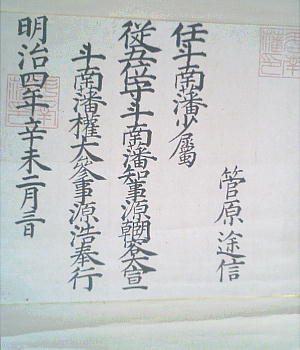 菅原途信
任斗南藩少属
従五位守斗南藩知事源朝臣容大宣
斗南藩權大参事源浩奉行
明治四年辛未二月三日